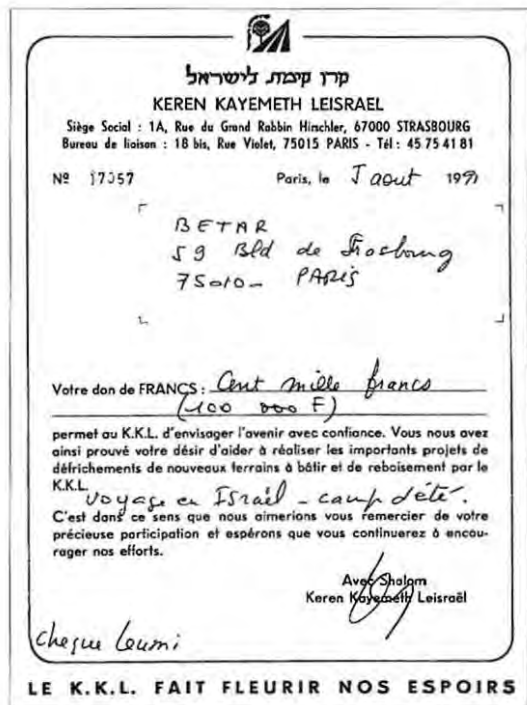 קרן קימת לישראל
KEREN KAYEMETH LEISRAEL
Siège Social : 1A, Rue du Grand Rabbin Hirschler, 67000 STRASBOURG
Bureau de liaison : 18 bis, Rue Violet, 75015 PARIS - Tél : 45 75 41 81
Nº 17057 Paris, le 5 aout
BETAR
59 Bld de Strasbourg
75010 - PARIS
Votre don de FRANCS : Cent mille francs
(100 000 F)
permet au K.K.L. d'envisager l'avenir avec confiance. Vous nous avez
ainsi prouvé votre désir d'aider à réaliser les importants projets de
défrichements de nouveaux terrains à bâtir et de reboisement par le
K.K.L.
voyage en Israël - camp d'été.
C'est dans ce sens que nous aimerions vous remercier de votre
précieuse participation et espérons que vous continuerez à encou-
rager nos efforts.
Avec Shalom
Keren Kayemeth Leisraël
Cheque Leumi
LE K.K.L. FAIT FLEURIR NOS ESPOIRS